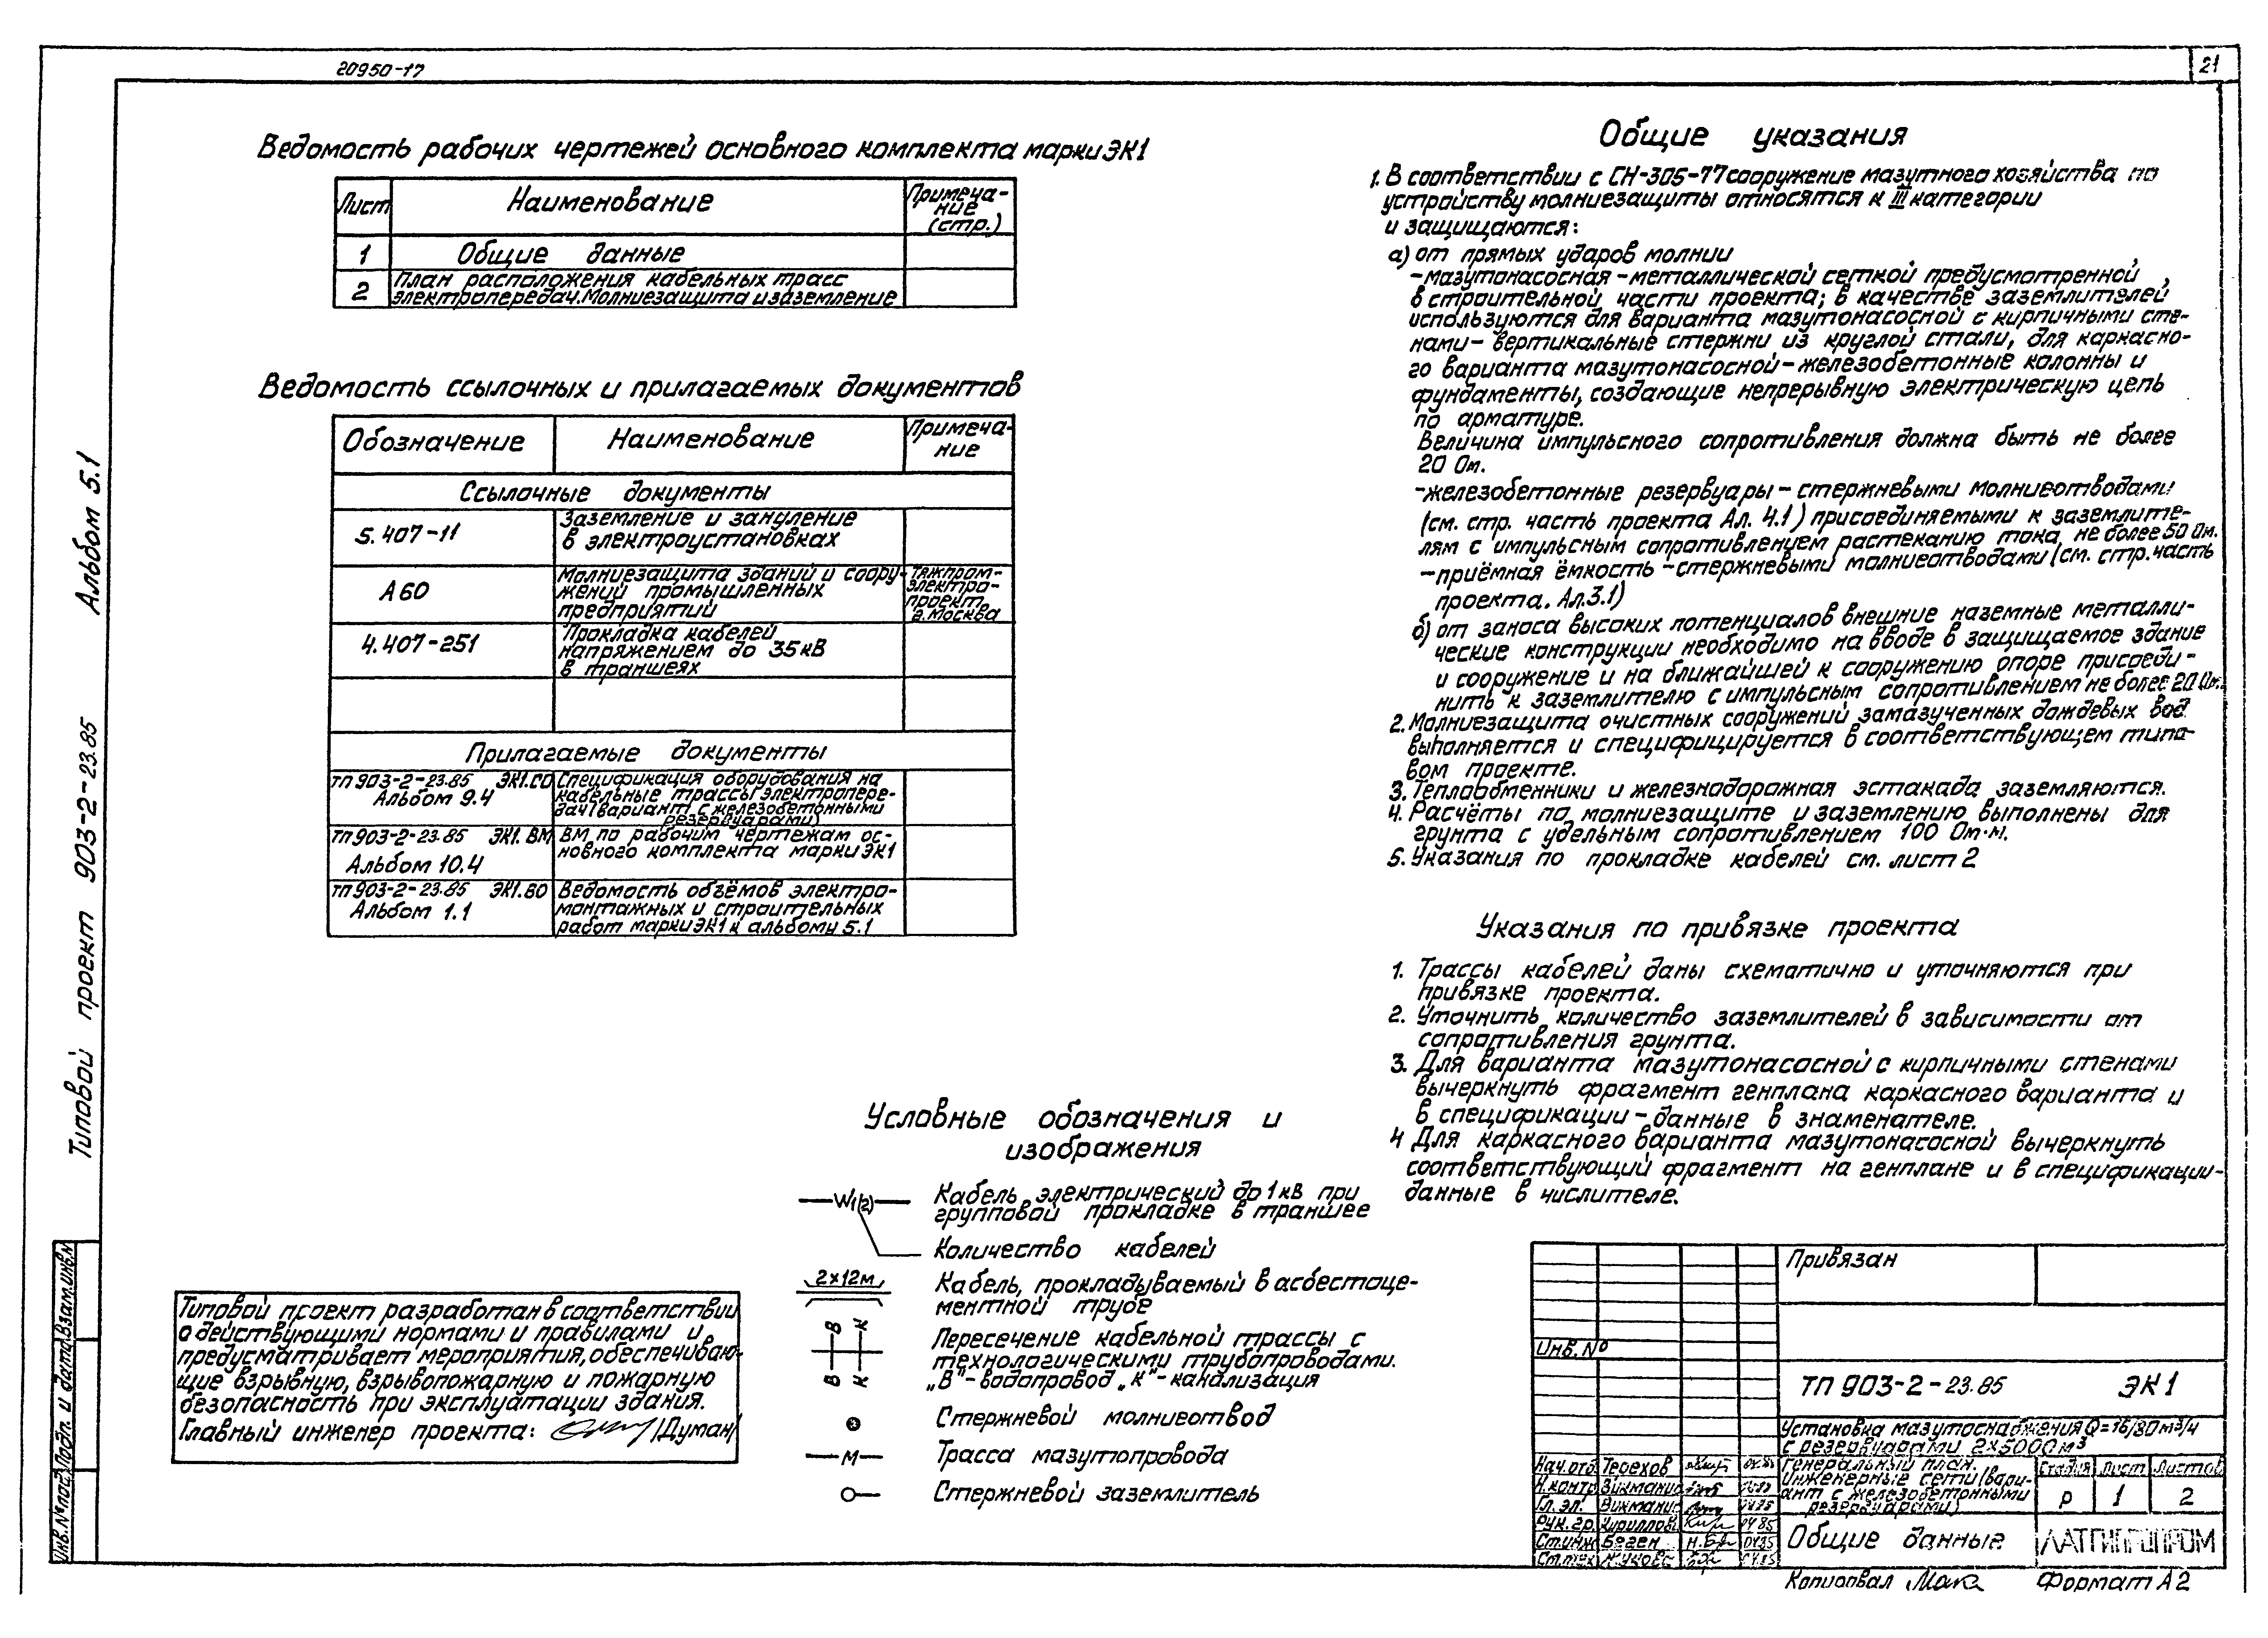 20950-17
21
Ведомость рабочих чертежей основного комплекта марки ЭК1
Лист
Наименование
Примеча-
ние
(стр.)
1
Общие данные
2
План расположения кабельных трасс
электропередач. Молниезащита и заземление
Ведомость ссылочных и прилагаемых документов
Обозначение
Наименование
Примеча-
ние
Ссылочные документы
5.407-11
Заземление и зануление
в электроустановках
А60
Молниезащита зданий и соору-
жений промышленных
предприятий
Тяжпром-
электро-
проект
г. Москва
4.407-251
Прокладка кабелей
напряжением до 35кВ
в траншеях
Прилагаемые документы
ТП 903-2-23.85 ЭК1.СО
Альбом 9.4
Спецификация оборудования на
кабельные трассы электропере-
дач (вариант с железобетонными
резервуарами)
ТП 903-2-23.85 ЭК1.ВМ
Альбом 10.4
ВМ по рабочим чертежам ос-
новного комплекта марки ЭК1
ТП 903-2-23.85 ЭК1.ВО
Альбом 1.1
Ведомость объёмов электро-
монтажных и строительных
работ марки ЭК1 к альбому 5.1
Общие указания
1. В соответствии с СН-305-77 сооружение мазутного хозяйства по
устройству молниезащиты относятся к III категории
и защищаются:
а) от прямых ударов молнии
-мазутонасосная-металлической сеткой предусмотренной
в строительной части проекта; в качестве заземлителей
используются для варианта мазутонасосной с кирпичными сте-
нами-вертикальные стержни из круглой стали, для каркасно-
го варианта мазутонасосной-железобетонные колонны и
фундаменты, создающие непрерывную электрическую цепь
по арматуре.
Величина импульсного сопротивления должна быть не более
20 Ом.
-железобетонные резервуары-стержневыми молниеотводами
(см. стр. часть проекта Ал. 4.1) присоединяемыми к заземлите-
лям с импульсным сопротивлением растеканию тока не более 50 Ом.
-приёмная ёмкость-стержневыми молниеотводами (см. стр. часть
проекта. Ал.3.1)
б) от заноса высоких потенциалов внешние наземные металли-
ческие конструкции необходимо на вводе в защищаемое здание
и сооружение и на ближайшей к сооружению опоре присоеди-
нить к заземлителю с импульсным сопротивлением не более 20 Ом.
2. Молниезащита очистных сооружений замазученных дождевых вод
выполняется и специфицируется в соответствующем типо-
вом проекте.
3. Теплообменники и железнодорожная эстакада заземляются.
4. Расчёты по молниезащите и заземлению выполнены для
грунта с удельным сопротивлением 100 Ом·м.
5. Указания по прокладке кабелей см. лист 2
Указания по привязке проекта
1. Трассы кабелей даны схематично и уточняются при
привязке проекта.
2. Уточнить количество заземлителей в зависимости от
сопротивления грунта.
3. Для варианта мазутонасосной с кирпичными стенами
вычеркнуть фрагмент генплана каркасного варианта и
в спецификации-данные в знаменателе.
4 Для каркасного варианта мазутонасосной вычеркнуть
соответствующий фрагмент на генплане и в спецификации-
данные в числителе.
Условные обозначения и
изображения
W1(2)
Кабель электрический до 1кВ при
групповой прокладке в траншее
Количество кабелей
2×12м
Кабель, прокладываемый в асбестоце-
ментной трубе
В К
В К
Пересечение кабельной трассы с
технологическими трубопроводами.
„В"-водопровод „К"-канализация
Стержневой молниеотвод
М
Трасса мазутопровода
Стержневой заземлитель
Типовой проект разработан в соответствии
с действующими нормами и правилами и
предусматривает мероприятия, обеспечиваю-
щие взрывную, взрывопожарную и пожарную
безопасность при эксплуатации здания.
Главный инженер проекта: /Думан/
Типовой проект 903-2-23.85 Альбом 5.1
Инв.№подл. Подп. и дата Взам.инв.№
Привязан
Инв. №
ТП 903-2-23.85 ЭК1
Установка мазутоснабжения Q=16/30м³/ч
с резервуарами 2×5000м³
Нач.отд. Терехов 04.85
Н.контр Викманис
Гл. эл. Викманис 04.85
Рук. гр. Кириллов 04.85
Ст.инж Беген 04.85
Ст.тех 04.85
Генеральный план.
Инженерные сети (вари-
ант с железобетонными
резервуарами)
Стадия Лист Листов
Р 1 2
Общие данные
ЛАТГИПРОПРОМ
Копировал
Формат А2